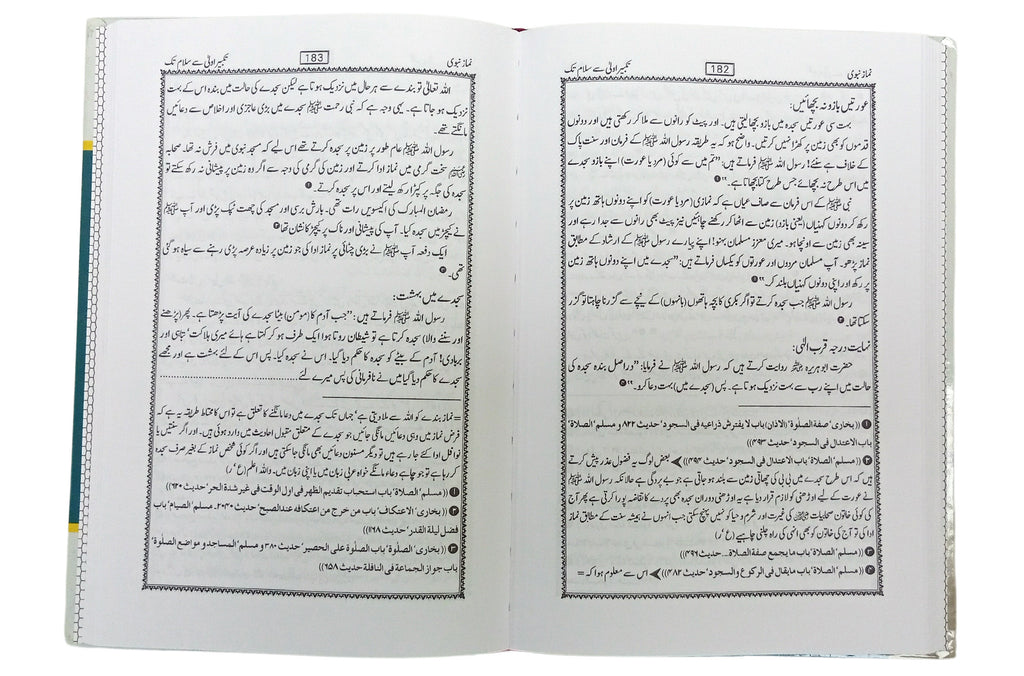 نماز نبوی 182 تکبیر اولیٰ سے سلام تک
عورتیں بازو نہ بچھائیں:
بہت سی عورتیں سجدہ میں بازو بچھا لیتی ہیں۔ اور پیٹ کو رانوں سے ملا کر رکھتی ہیں اور دونوں
قدموں کو بھی زمین پر کھڑا نہیں کرتیں۔ واضح ہو کہ یہ طریقہ رسول اللہ ﷺ کے فرمان اور سنت پاک
کے خلاف ہے سنئے! رسول اللہ ﷺ فرماتے ہیں: ”تم میں سے کوئی (مرد یا عورت) اپنے بازو سجدے
میں اس طرح نہ بچھائے جس طرح کتا بچھاتا ہے۔“ ❶
نبی ﷺ کے اس فرمان سے صاف عیاں ہے کہ نمازی (مرد یا عورت) کو اپنے دونوں ہاتھ زمین پر
رکھ کر دونوں کہنیاں (یعنی بازو) زمین سے اٹھا کر رکھنے چاہئیں نیز پیٹ بھی رانوں سے جدا رہے اور
سینہ بھی زمین سے اونچا ہو۔ میری معزز مسلمان بہنو! اپنے پیارے رسول ﷺ کے ارشاد کے مطابق
نماز پڑھو۔ آپ مسلمان مردوں اور عورتوں کو یکساں فرماتے ہیں: ”سجدے میں اپنے دونوں ہاتھ زمین
پر رکھ اور اپنی دونوں کہنیاں بلند کر۔“ ❷
رسول اللہ ﷺ جب سجدہ کرتے تو اگر بکری کا بچہ ہاتھوں (بانہوں) کے نیچے سے گزرنا چاہتا تو گزر
سکتا تھا۔ ❸
نہایت درجہ قرب الٰہی:
حضرت ابو ہریرہ ؓ روایت کرتے ہیں کہ رسول اللہ ﷺ نے فرمایا: ”دراصل بندہ سجدہ کی
حالت میں اپنے رب سے بہت نزدیک ہوتا ہے۔ پس (سجدے میں) بہت دعا کرو۔“ ❹
❶ ((بخاری‘ صفة الصلٰوة (الاذان) باب لا یفترش ذراعیه فی السجود‘ حدیث ۸۲۲ و مسلم‘ الصلاة‘
باب الاعتدال فی السجود‘ حدیث ۴۹۳))
❷ ((مسلم‘ الصلاة‘ باب الاعتدال فی السجود‘ حدیث ۴۹۴)) بعض لوگ یہ فضول عذر پیش کرتے
ہیں کہ اس طرح سجدے میں بی بی کی چھاتی زمین سے بلند ہو جاتی ہے جو بے پردگی ہے حالانکہ رسول اللہ ﷺ
نے عورت کے لیے اوڑھنی کو لازم قرار دیا ہے یہ اوڑھنی دوران سجدہ بھی پردے کا تقاضہ پورا کرتی ہے پھر آج
کی کوئی خاتون صحابیات کی غیرت اور شرم و حیا کو نہیں پہنچ سکتی جب انہوں نے ہمیشہ سنت کے مطابق نماز
ادا کی تو آج کی خاتون کو بھی انہی کی راہ چلنی چاہیے (ع‘ر)
❸ ((مسلم‘ الصلاة‘ باب ما یجمع صفة الصلاة... حدیث ۴۹۶))
❹ ((مسلم‘ الصلاة‘ باب ما یقال فی الرکوع والسجود‘ حدیث ۴۸۲)) اس سے معلوم ہوا کہ =
نماز نبوی 183 تکبیر اولیٰ سے سلام تک
اللہ تعالیٰ تو بندے سے ہر حال میں نزدیک ہوتا ہے لیکن سجدے کی حالت میں بندہ اس کے بہت
نزدیک ہو جاتا ہے۔ یہی وجہ ہے کہ نبی رحمت ﷺ سجدے میں بڑی عاجزی اور اخلاص سے دعائیں
مانگتے تھے۔
رسول اللہ ﷺ عام طور پر زمین پر سجدہ کرتے تھے اس لیے کہ مسجد نبوی میں فرش نہ تھا۔ صحابہ
سخت گرمی میں نماز ادا کرتے اور زمین کی گرمی کی وجہ سے اگر وہ زمین پر پیشانی نہ رکھ سکتے تو
سجدہ کی جگہ پر کپڑا رکھ لیتے اور اس پر سجدہ کرتے۔ ❶
رمضان المبارک کی اکیسویں رات تھی۔ بارش برسی اور مسجد کی چھت ٹپک پڑی اور آپ ﷺ
نے کیچڑ میں سجدہ کیا۔ آپ کی پیشانی اور ناک پر کیچڑ کا نشان تھا ❷
ایک دفعہ آپ ﷺ نے بڑی چٹائی پر نماز ادا کی جو زمین پر زیادہ عرصہ پڑی رہنے سے سیاہ ہو گئی
تھی۔ ❸
سجدے میں بہشت:
رسول اللہ ﷺ فرماتے ہیں: ”جب آدم کا (مومن) بیٹا سجدے کی آیت پڑھتا ہے۔ پھر (پڑھنے
اور سننے والا) سجدہ کرتا ہے تو شیطان روتا ہوا ایک طرف ہو کر کہتا ہے ہائے میری ہلاکت‘ تباہی اور
بربادی! آدم کے بیٹے کو سجدہ کا حکم دیا گیا۔ اس نے سجدہ کیا۔ پس اس کے لئے بہشت ہے اور مجھے
سجدے کا حکم دیا گیا میں نے نافرمانی کی پس میرے لئے ........................
= نماز بندے کو اللہ سے ملا دیتی ہے‘ جہاں تک سجدے میں دعا مانگنے کا تعلق ہے تو اس کا محتاط طریقہ یہ ہے کہ
فرض نماز میں وہی دعائیں مانگی جائیں جو سجدے کے متعلق مقبول احادیث میں وارد ہوئی ہیں۔ اور اگر سنتیں یا
نوافل ادا کئے جا رہے ہیں تو دیگر مسنون دعائیں بھی مانگی جا سکتی ہیں اور اگر کوئی شخص نماز کے بغیر صرف سجدہ
کر رہا ہے تو جو چاہے دعا مانگے خواہ عربی زبان میں یا اپنی زبان میں۔ واللہ اعلم (ع‘ر)
❶ ((مسلم‘ الصلاة‘ باب استحباب تقدیم الظهر فی اول الوقت فی غیر شدة الحر‘ حدیث ۶۲۰))
❷ ((بخاری‘ الاعتکاف‘ باب من خرج من اعتکافه عند الصبح‘ حدیث ۲۰۴۰۔ مسلم‘ الصیام‘ باب
فضل لیلة القدر‘ حدیث ۱۱۶۸))
❸ ((بخاری‘ الصلٰوة‘ باب الصلٰوة علی الحصیر‘ حدیث ۳۸۰ و مسلم‘ المساجد و مواضع الصلٰوة‘
باب جواز الجماعة فی النافلة حدیث ۶۵۸))